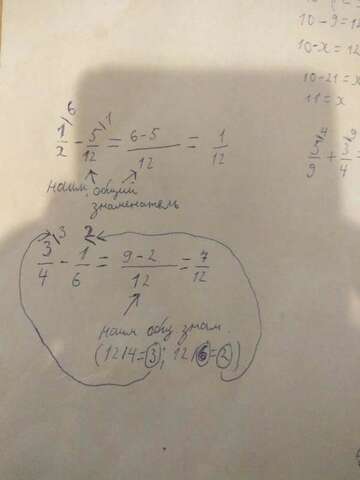 10-9=12
10-x=12
10-21=x
11=x
1/x\6 - 5/12\1 = 6-5/12 = 1/12
наим. общий
знаменатель
3/9\4 + 3/4\9 =
3/4\3 - 1/6\2 = 9-2/12 = 7/12
наим общ знам.
(12/4=3; 12/6=2)